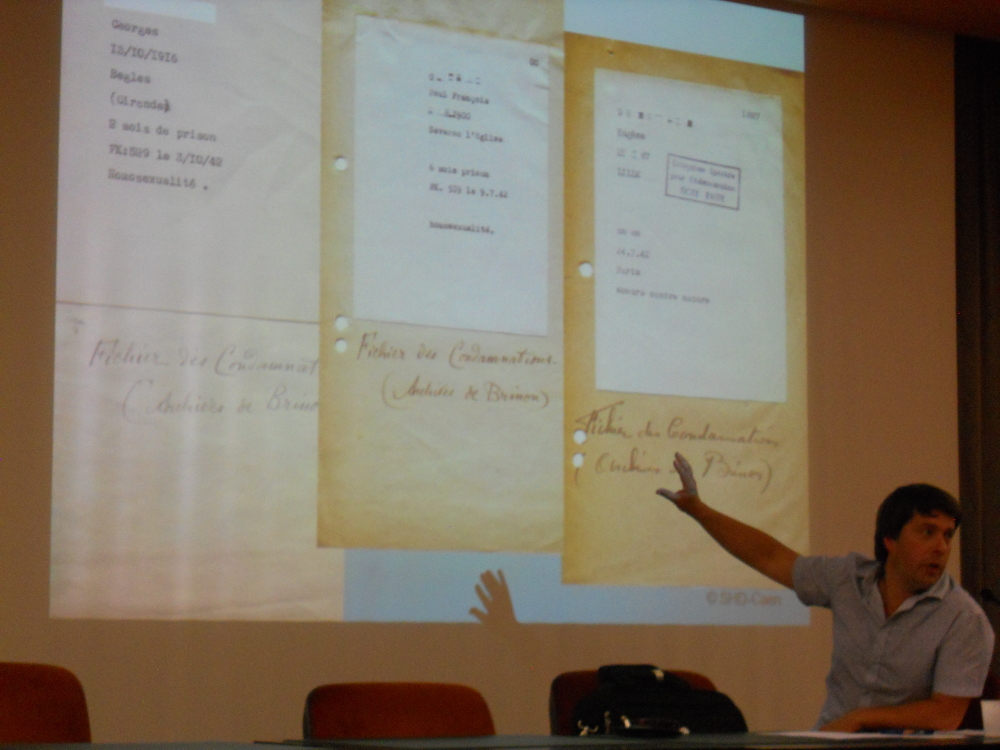 Georges
13/10/1916
Begles
(Gironde)
2 mois de prison
FK:529 le 3/10/42
Homosexualité .
Fichier des Condamnat
( Archives de Brino
Paul François
1900
Saverne l'Eglise
6 mois prison
FK. 529 le 9.7.42
homosexualité.
Fichier des Condamnations.
(Archives de Brinon)
1887
Eugène
LILLE
Paris
moeurs contre nature
Fichier des Condamnations
(Archives de Brinon)
© SHD-Caen